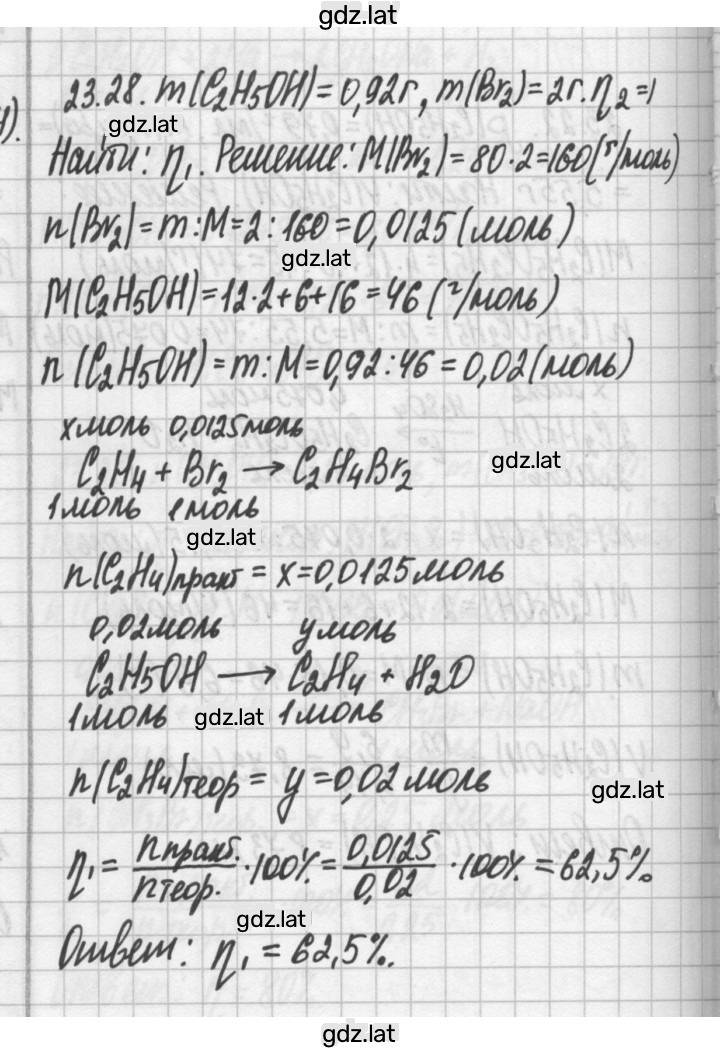 gdz.lat
23.28. m(C₂H₅OH)=0,92г, m(Br₂)=2г. η₂=1
gdz.lat
Найти: η₁. Решение: M(Br₂)=80·2=160(г/моль)
n(Br₂)=m:M=2:160=0,0125(моль)
gdz.lat
M(C₂H₅OH)=12·2+6+16=46(г/моль)
n(C₂H₅OH)=m:M=0,92:46=0,02(моль)
x моль 0,0125моль
C₂H₄+Br₂→C₂H₄Br₂
gdz.lat
1моль 1моль
gdz.lat
n(C₂H₄)практ=x=0,0125моль
0,02моль y моль
C₂H₅OH→C₂H₄+H₂O
1моль gdz.lat 1моль
n(C₂H₄)теор=y=0,02моль
gdz.lat
η₁=nпракт./nтеор.·100%=0,0125/0,02·100%=62,5%
gdz.lat
Ответ: η₁=62,5%.
gdz.lat